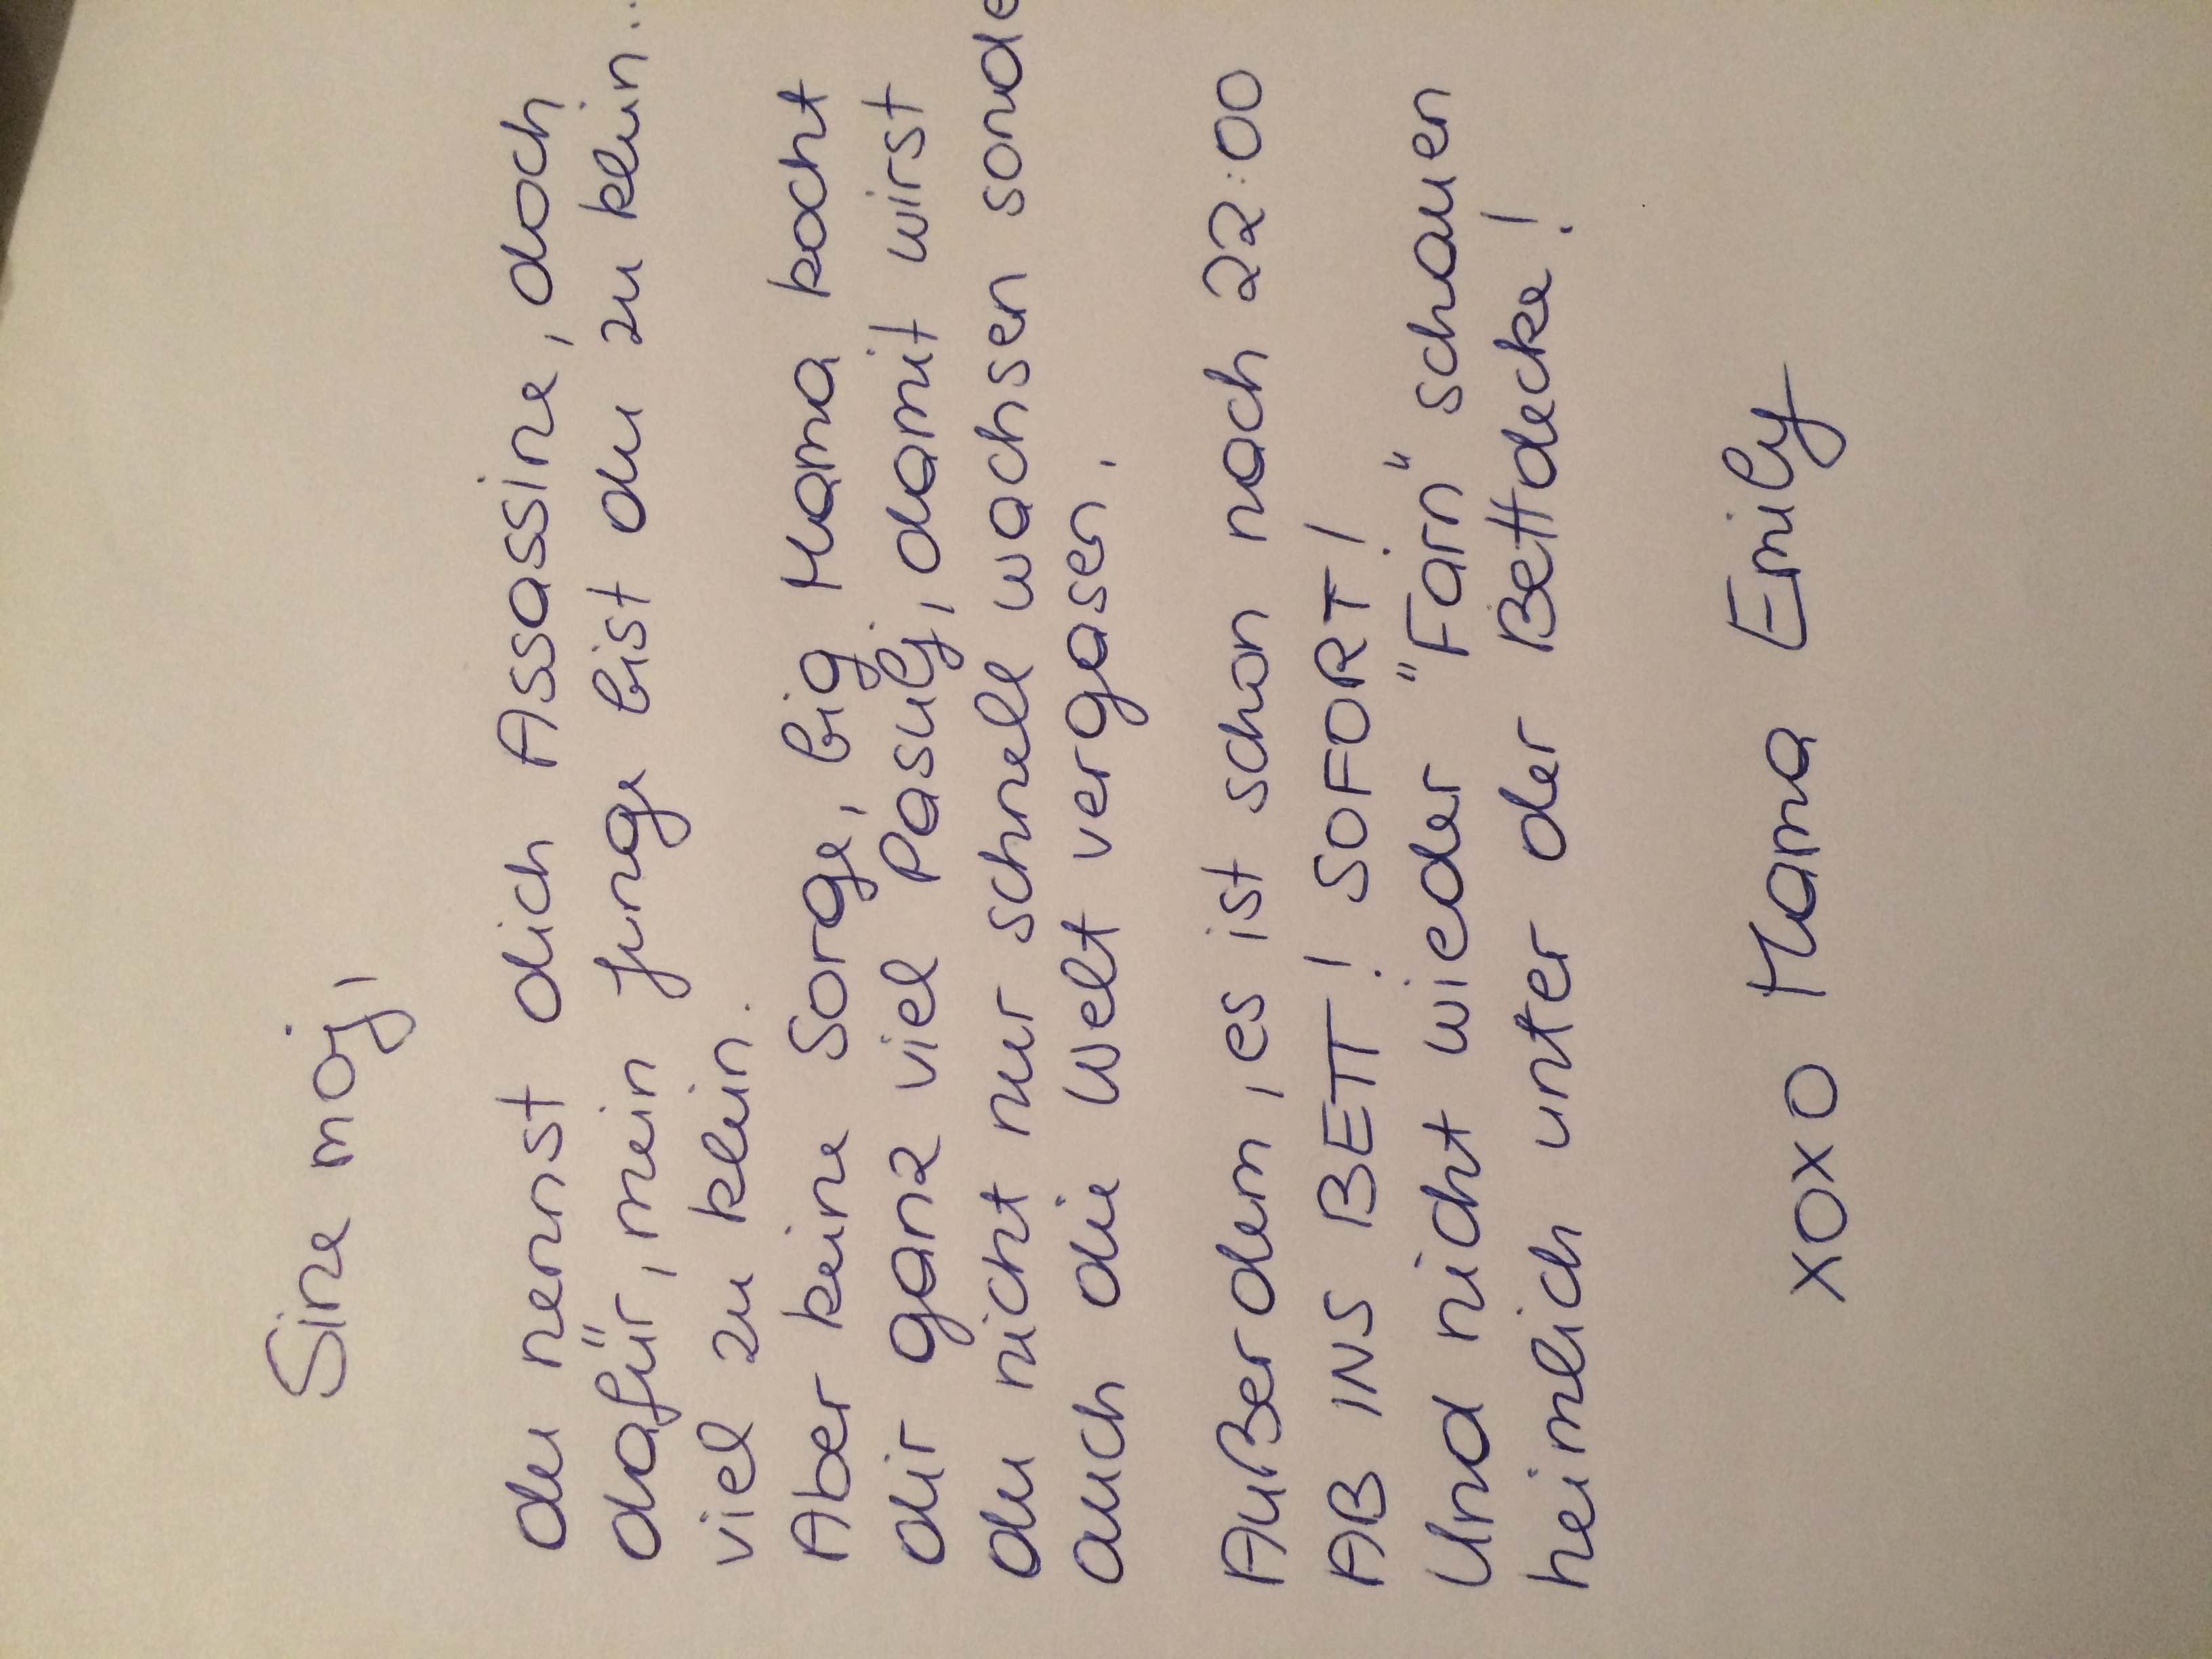 Sine moj,
du nennst dich Assassine, doch
dafür, mein Junge bist du zu klein...
viel zu klein.
Aber keine Sorge, big Mama kocht
dir ganz viel Pasulj, damit wirst
du nicht nur schnell wachsen sonde
auch die Welt vergasen.
Außerdem, es ist schon nach 22:00
AB INS BETT! SOFORT!
Und nicht wieder "Farn" schauen
heimlich unter der Bettdecke!
XOXO Mama Emily